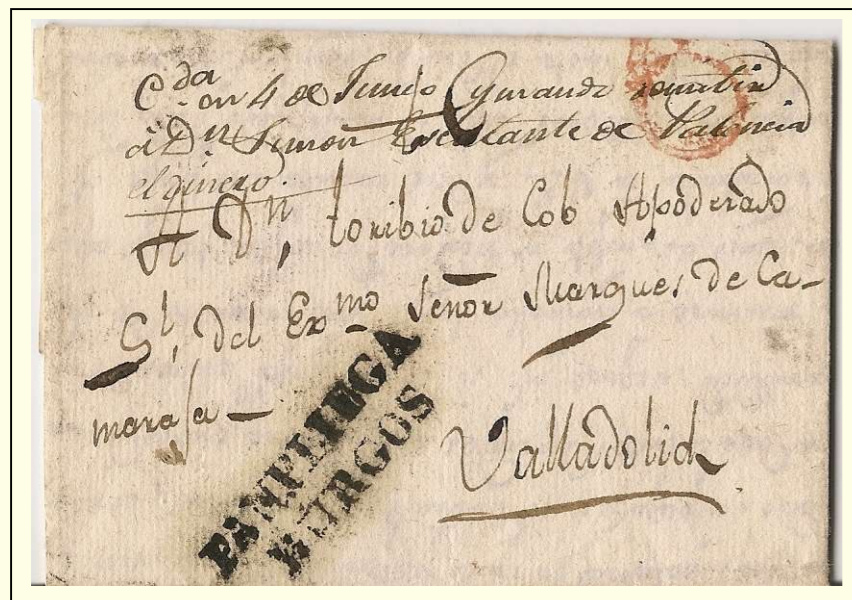 C.da on 4 de Junio
à Dn Simon Escalante de
el dinero.
A Dn, toribio de Cob Apoderado
Gl, del Exmo Señor Marques de Ca-
marasa —
PAMPLIEGA
BURGOS
Valladolid